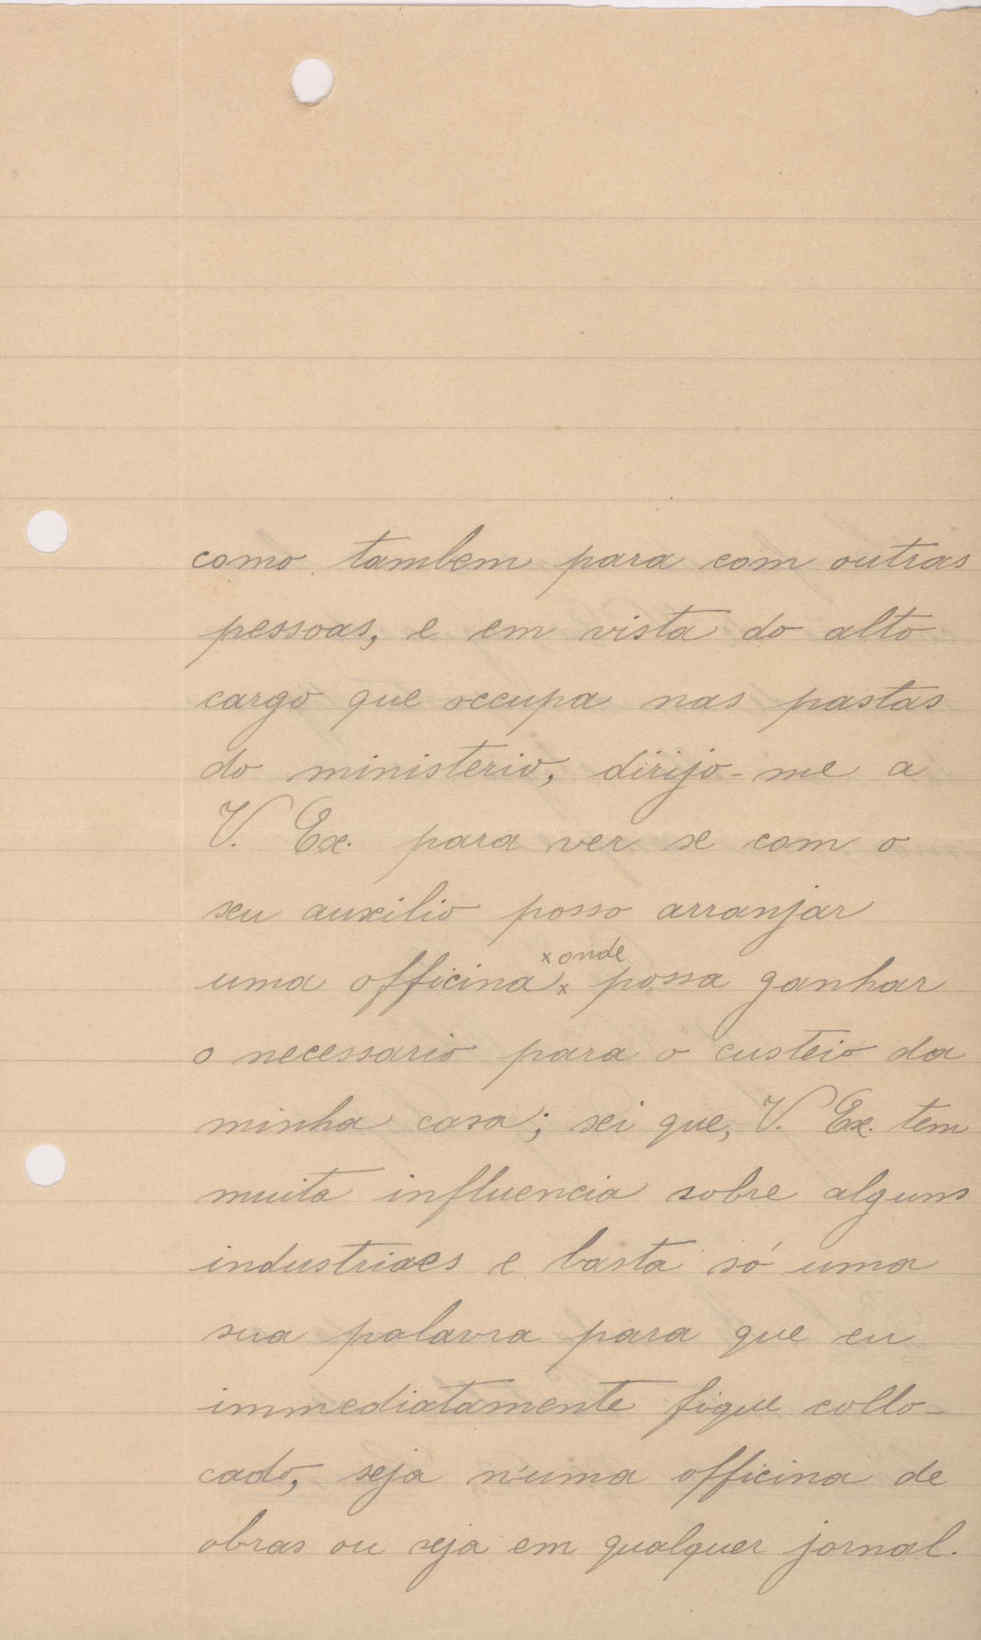 como tambem para com outras
pessoas, e em vista do alto
cargo que occupa nas pastas
do ministerio, dirijo-me a
V. Ex. para ver se com o
seu auxilio posso arranjar
x onde
uma officina x possa ganhar
o necessario para o custeio da
minha casa; sei que, V. Ex. tem
muita influencia sobre alguns
industriaes e basta só uma
sua palavra para que eu
immediatamente fique collo-
cado, seja n'uma officina de
obras ou seja em qualquer jornal.